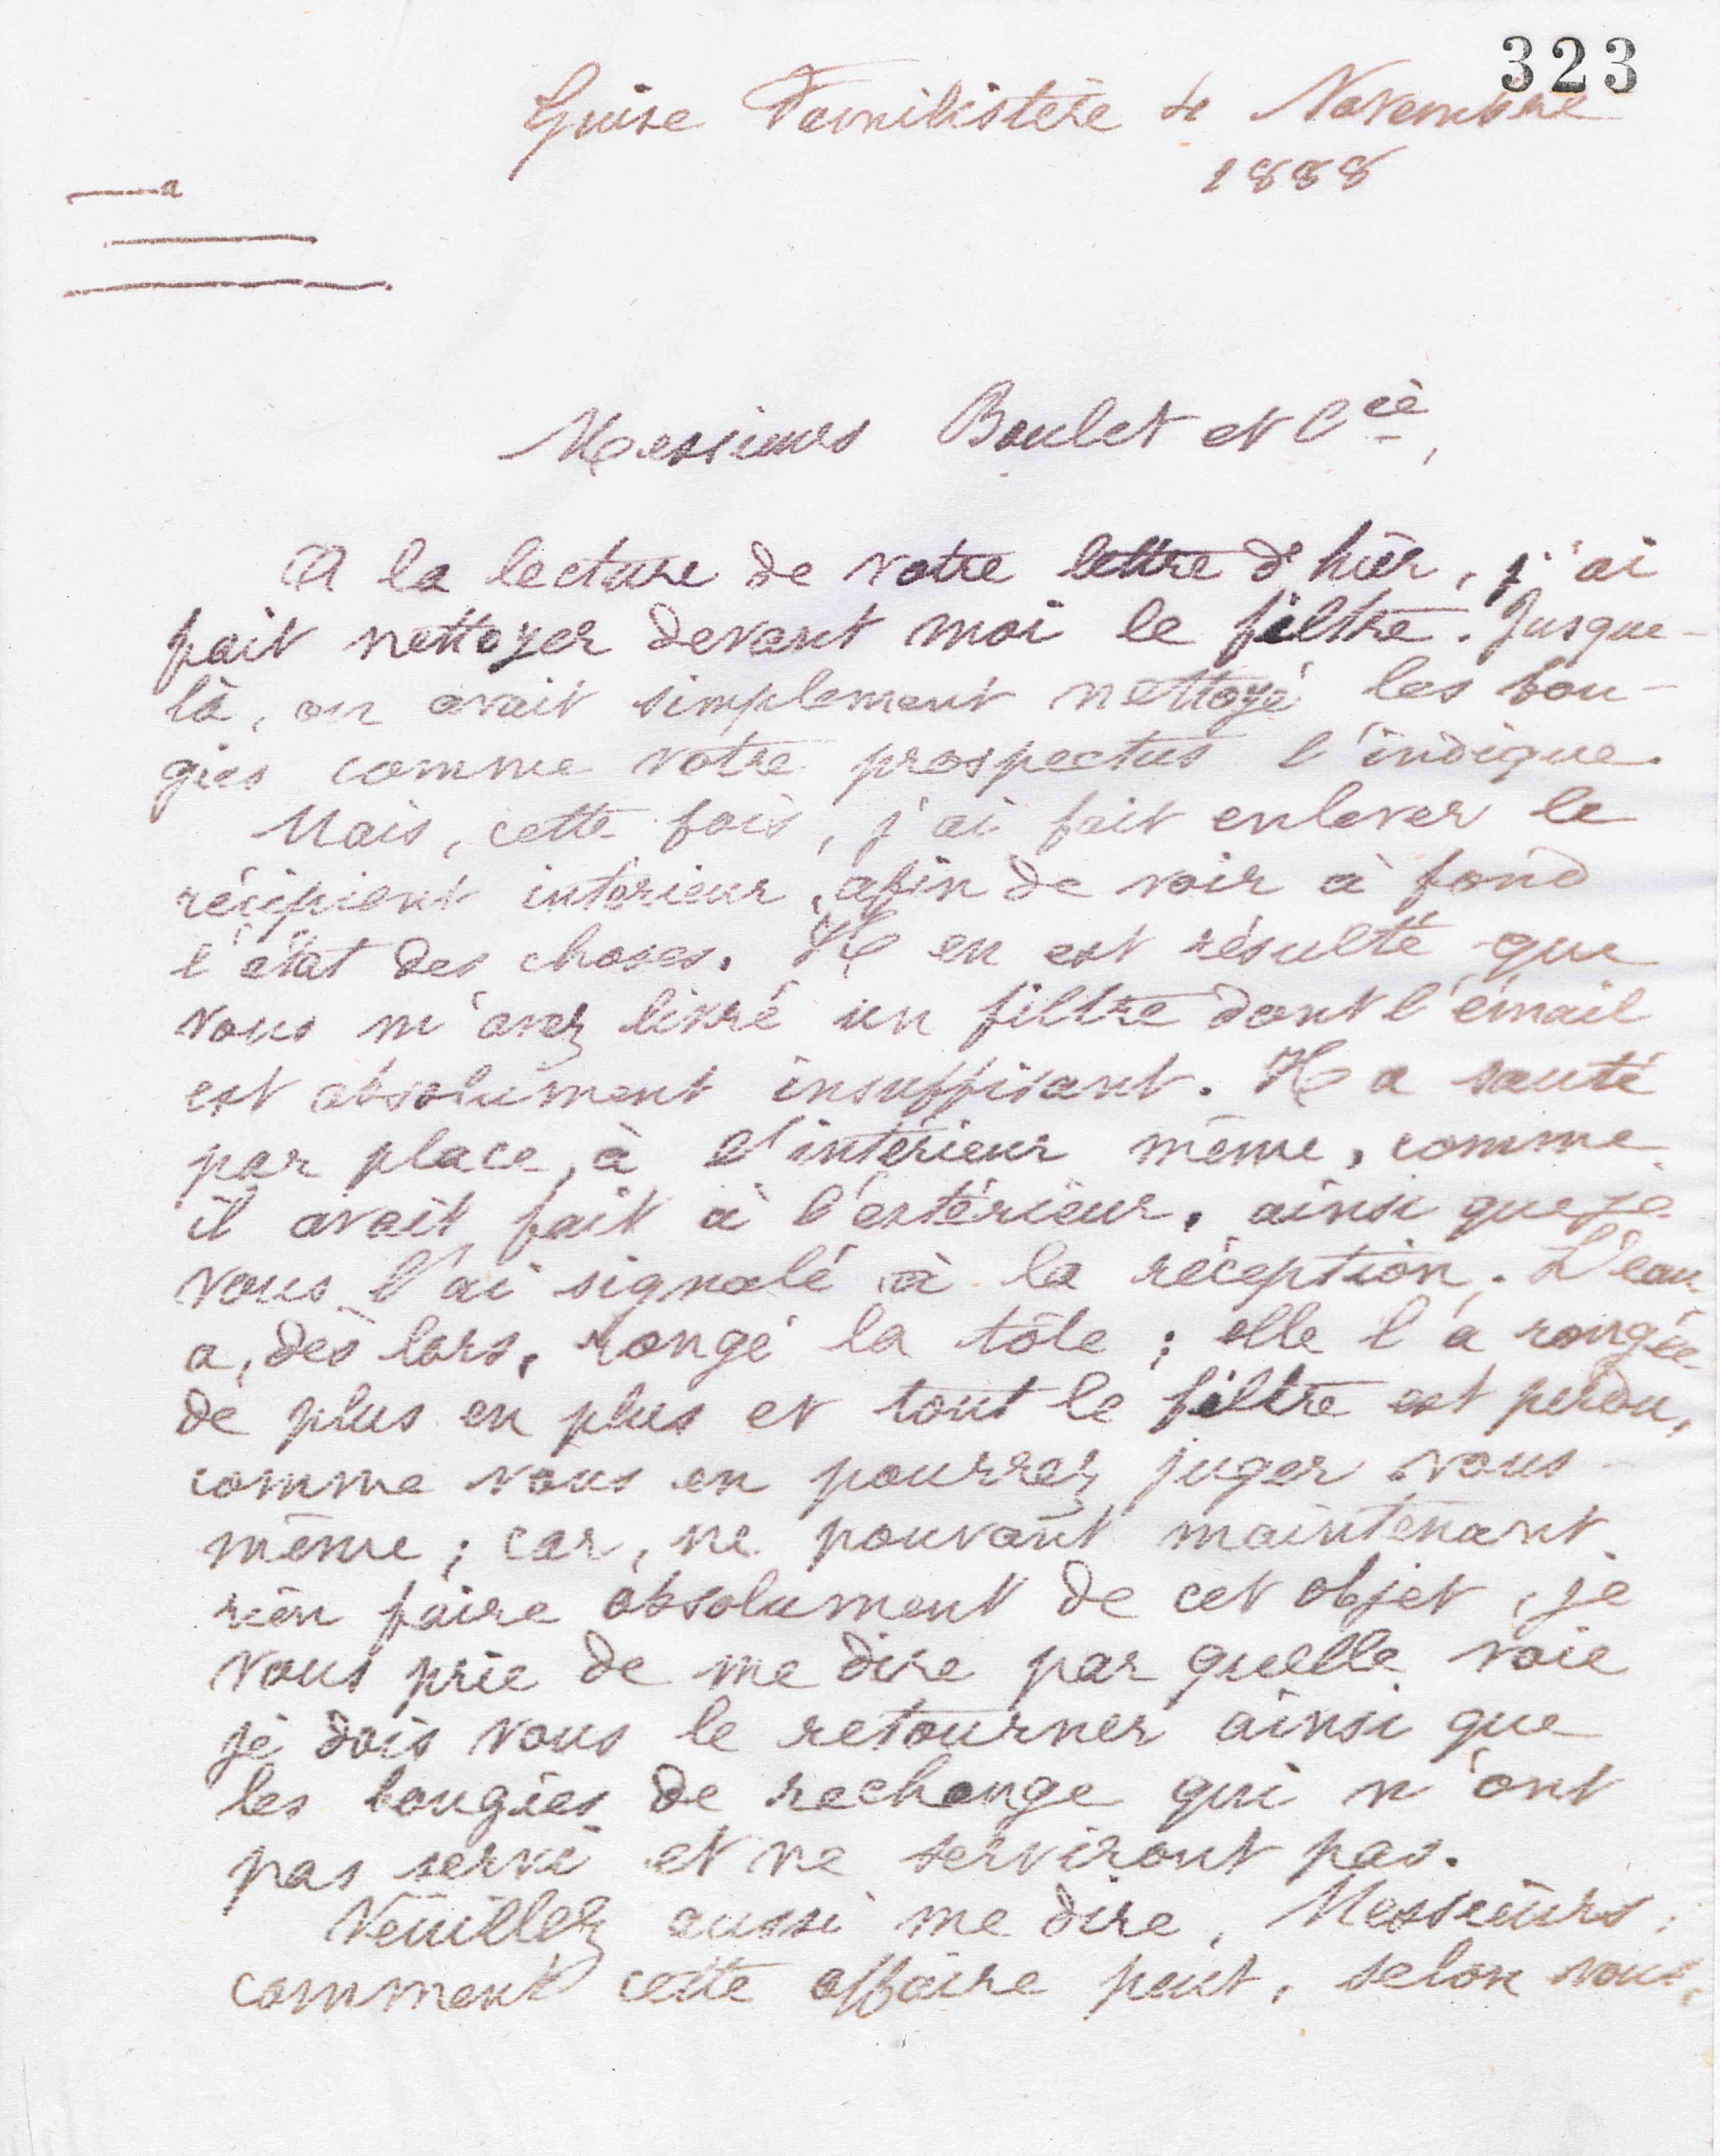 323
Guise Familistère 4 Novembre
1888
Messieurs Boulet et Cie,
A la lecture de votre lettre d'hier, j'ai
fait nettoyer devant moi le filtre. Jusque-
là, on avait simplement nettoyé les bou-
gies comme votre prospectus l'indique.
Mais, cette fois, j'ai fait enlever le
récipient intérieur, afin de voir à fond
l'état des choses. Il en est résulté que
vous m'avez livré un filtre dont l'émail
est absolument insuffisant. Il a sauté
par place, à l'intérieur même, comme
il avait fait à l'extérieur, ainsi que je
vous l'ai signalé à la réception. L'eau
a, dès lors, rongé la tôle ; elle l'a rongée
de plus en plus et tout le filtre est perdu,
comme vous en pourrez juger vous-
même ; car, ne pouvant maintenant
rien faire absolument de cet objet, je
vous prie de me dire par quelle voie
je dois vous le retourner ainsi que
les bougies de rechange qui n'ont
pas servi et ne serviront pas.
Veuillez aussi me dire, Messieurs,
comment cette affaire peut, selon vous,